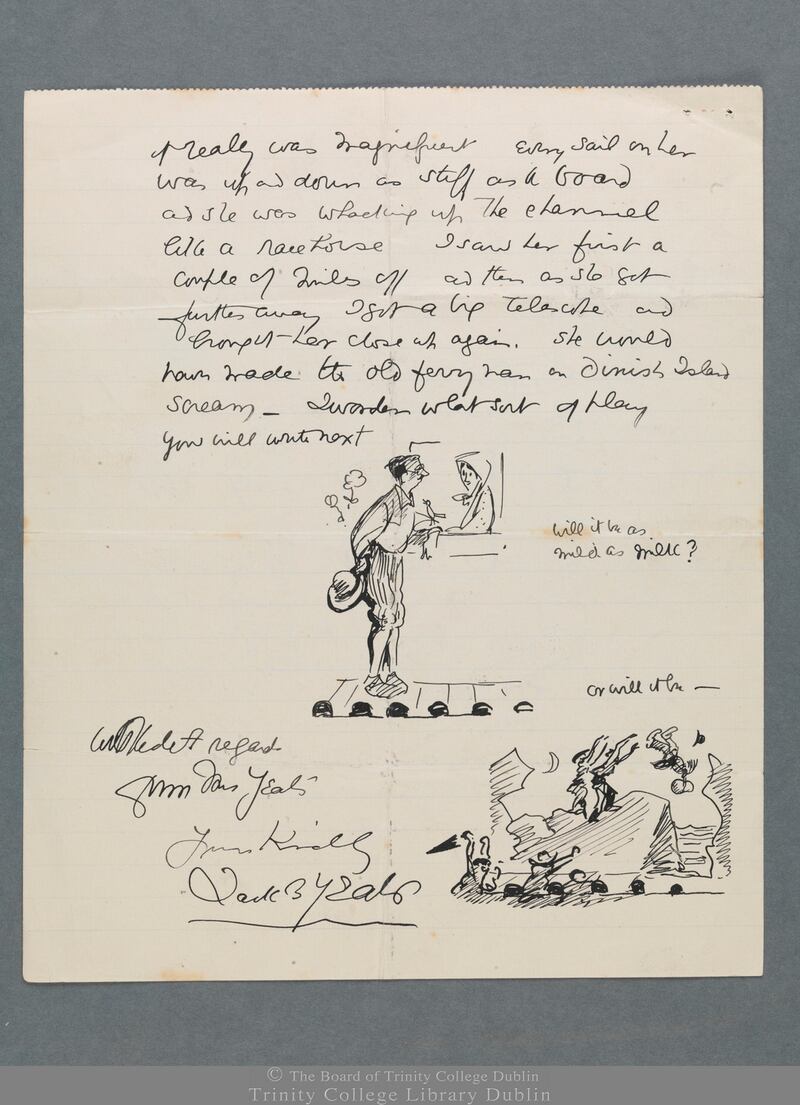 it really was magnificent every sail on her
was up and down as stiff as a board
and she was whacking up the channel
like a racehorse I saw her first a
couple of miles off and then as she got
further away I got a big telescope and
brought her close up again. She would
have made the old ferry man on Dinish Island
scream – I wonder what sort of play
you will write next
will it be as
mild as milk?
or will it be —
with kindest regards
from Mrs Yeats
Yours Kindly
Jack B Yeats
© The Board of Trinity College Dublin
Trinity College Library Dublin